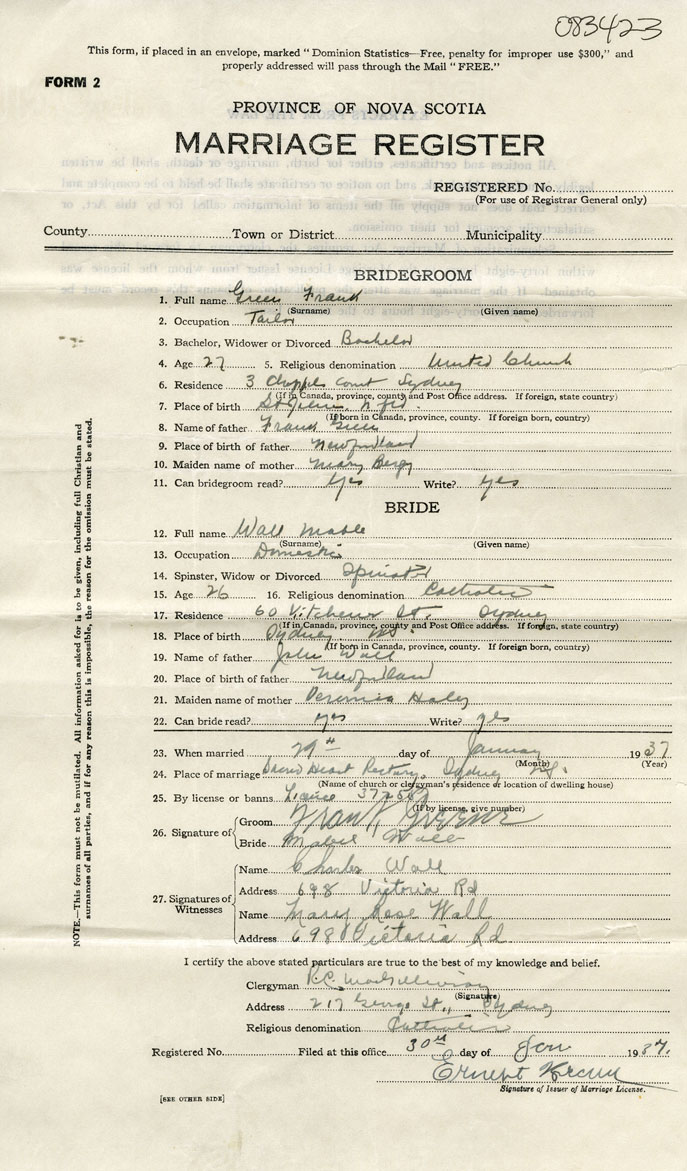 083423
This form, if placed in an envelope, marked "Dominion Statistics—Free, penalty for improper use $300," and
properly addressed will pass through the Mail "FREE."
FORM 2
PROVINCE OF NOVA SCOTIA
MARRIAGE REGISTER
REGISTERED No.
(For use of Registrar General only)
County Town or District Municipality
BRIDEGROOM
1. Full name Green Frank
(Surname) (Given name)
2. Occupation Tailor
3. Bachelor, Widower or Divorced Bachelor
4. Age 27 5. Religious denomination United Church
6. Residence 3 Court Sydney
(If in Canada, province, county and Post Office address. If foreign, state country)
7. Place of birth Nfld.
(If born in Canada, province, county. If foreign born, country)
8. Name of father Frank Green
9. Place of birth of father Newfoundland
10. Maiden name of mother Mary
11. Can bridegroom read? yes Write? yes
BRIDE
12. Full name Wall Mable
(Surname) (Given name)
13. Occupation Domestic
14. Spinster, Widow or Divorced Spinster
15. Age 26 16. Religious denomination Catholic
17. Residence 60 St. Sydney
(If in Canada, province, county and Post Office address. If foreign, state country)
18. Place of birth Sydney NS.
(If born in Canada, province, county. If foreign born, country)
19. Name of father John Wall
20. Place of birth of father Newfoundland
21. Maiden name of mother Veronica Haley
22. Can bride read? yes Write? yes
23. When married 29th day of January 1937
(Month) (Year)
24. Place of marriage Sacred Heart Rectory, Sydney N.S.
(Name of church or clergyman's residence or location of dwelling house)
25. By license or banns License
(If by license, give number)
26. Signature of
Groom Frank Greene
Bride Mabel Wall
27. Signatures of Witnesses
Name Charles Wall
Address 698 Victoria Rd
Name Mary Rose Wall
Address 698 Victoria Rd
I certify the above stated particulars are true to the best of my knowledge and belief.
Clergyman R.C. MacGillivray
(Signature)
Address 217 George St., Sydney
Religious denomination Catholic
Registered No. Filed at this office 30th day of Jan 1937.
Ernest
Signature of Issuer of Marriage License.
[SEE OTHER SIDE]
NOTE.—This form must not be mutilated. All information asked for is to be given, including full Christian and
surnames of all parties, and if for any reason this is impossible, the reason for the omission must be stated.